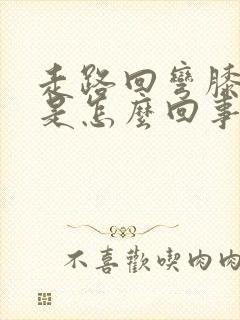 走路回彎膝
是怎麼回事
不喜歡喫肉肉